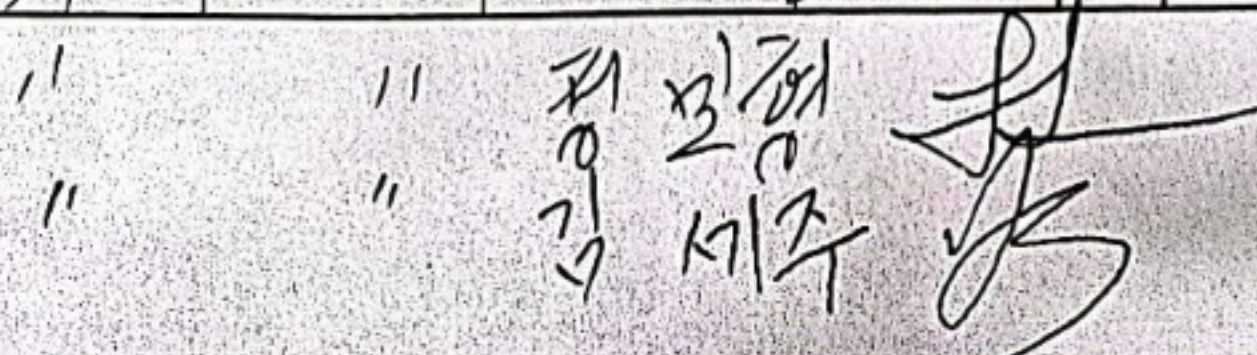 〃 〃 정민형
〃 〃 김세주